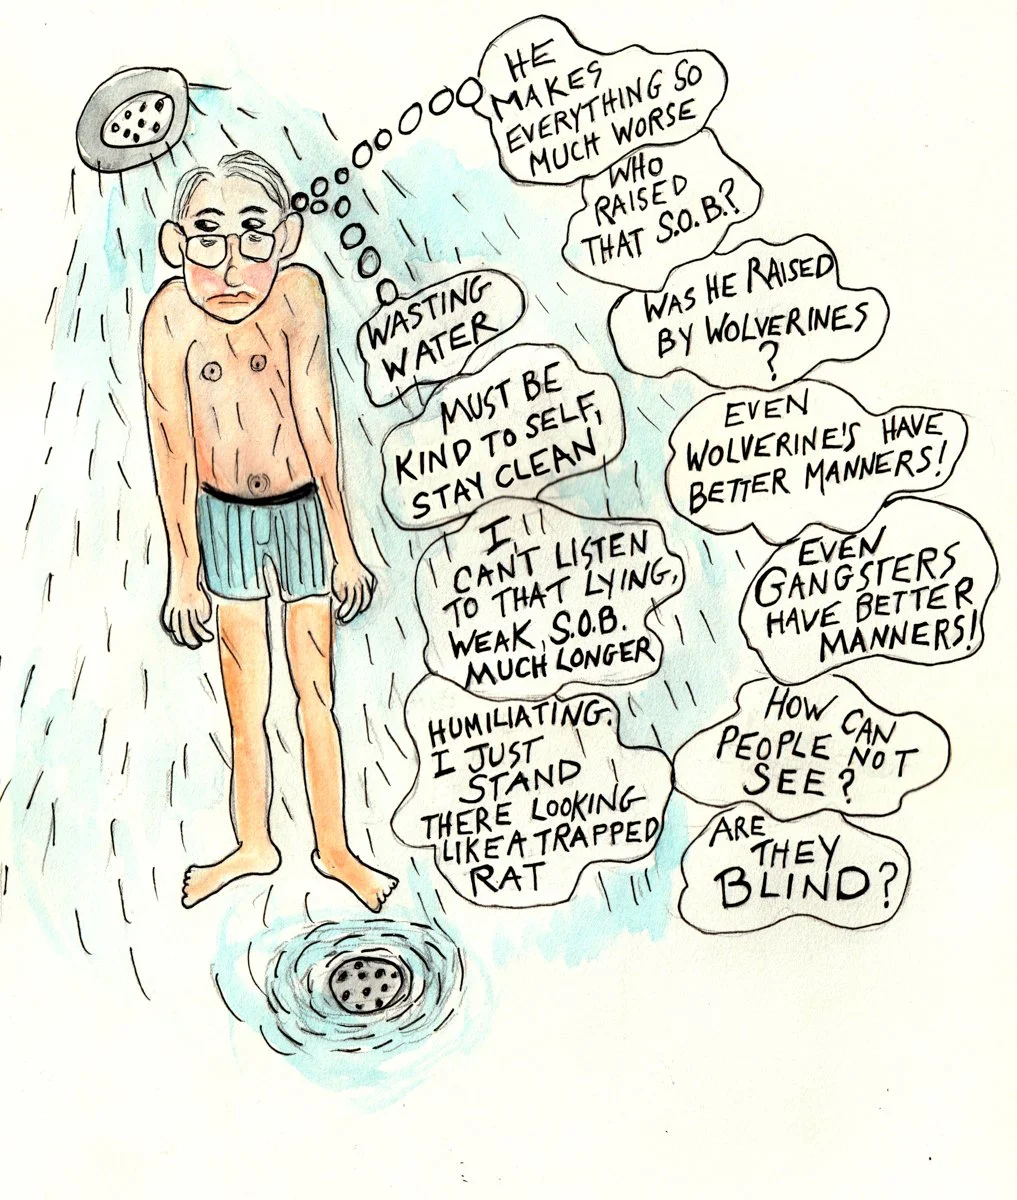 HE
MAKES
EVERYTHING SO
MUCH WORSE
WHO
RAISED
THAT S.O.B.?
WAS HE RAISED
BY WOLVERINES
?
EVEN
WOLVERINE'S HAVE
BETTER MANNERS!
EVEN
GANGSTERS
HAVE BETTER
MANNERS!
HOW CAN
PEOPLE NOT
SEE?
ARE
THEY
BLIND?
WASTING
WATER
MUST BE
KIND TO SELF,
STAY CLEAN
I
CAN'T LISTEN
TO THAT LYING,
WEAK, S.O.B.
MUCH LONGER
HUMILIATING.
I JUST
STAND
THERE LOOKING
LIKE A TRAPPED
RAT